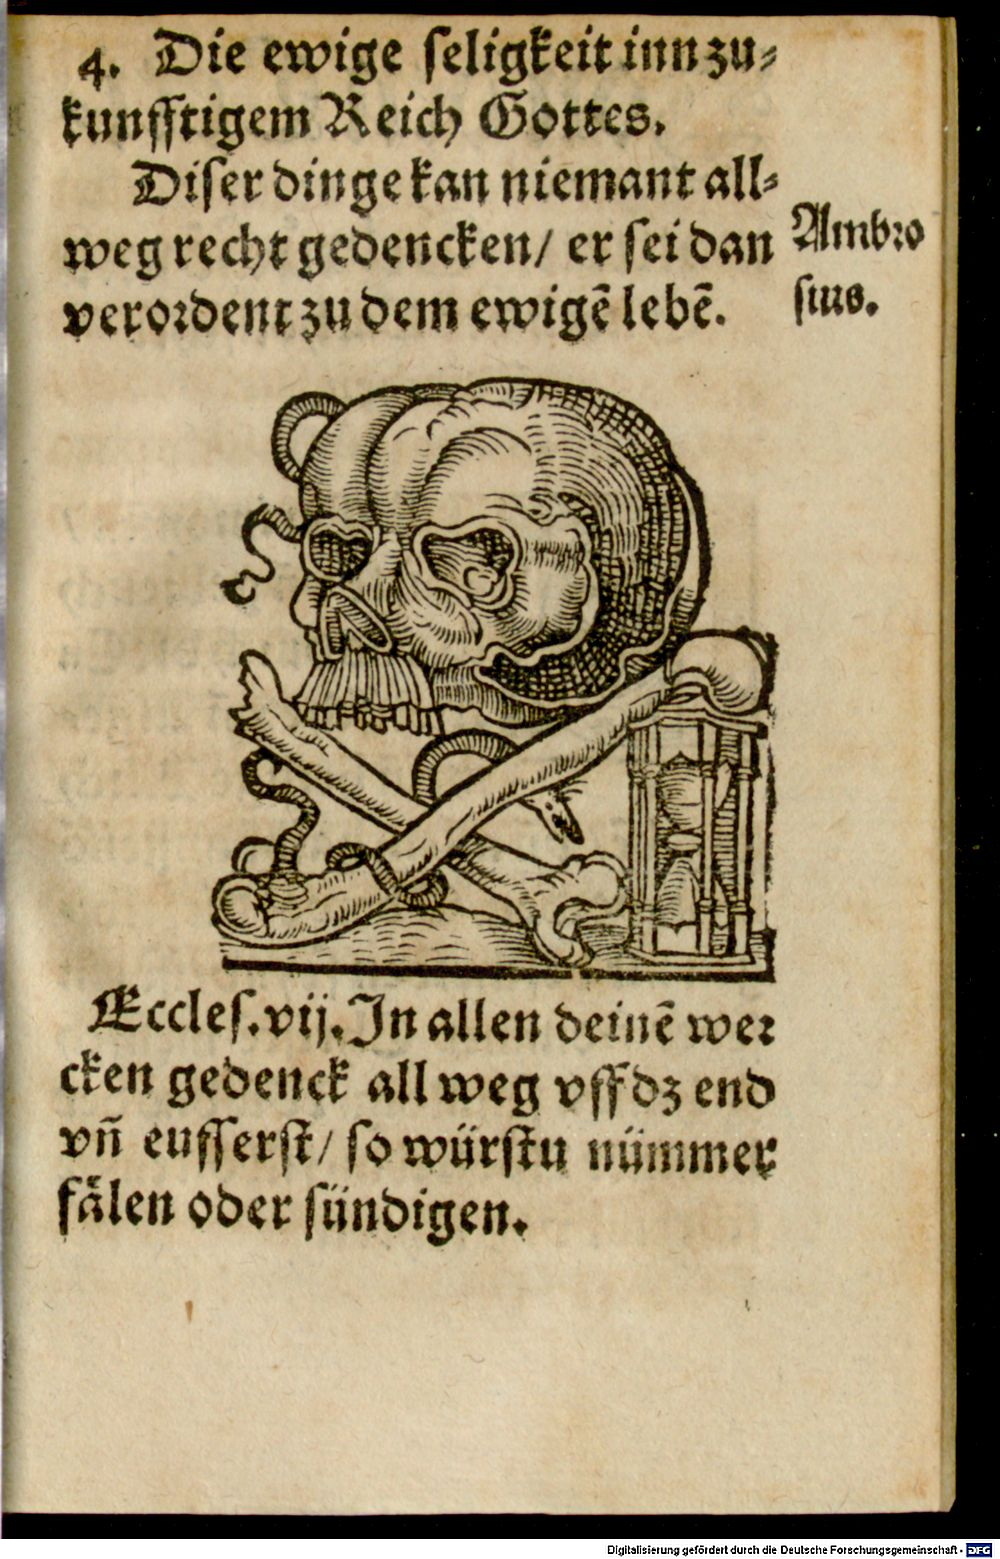 4. Die ewige seligkeit inn zu⸗
kunfftigem Reich Gottes.
Diser dinge kan niemant all⸗
weg recht gedencken/ er sei dan
verordent zu dem ewigẽ lebẽ.
Ambro
sius.
Eccles.vij. In allen deinẽ wer
cken gedenck all weg vff dz end
vñ eusserst/ so würstu nümmer
fälen oder sündigen.
Digitalisierung gefördert durch die Deutsche Forschungsgemeinschaft - DFG